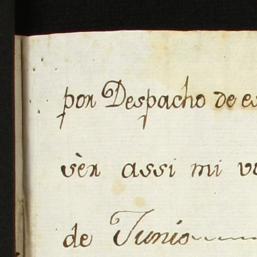 por Despacho de es
sèr assi mi vo
de Junio